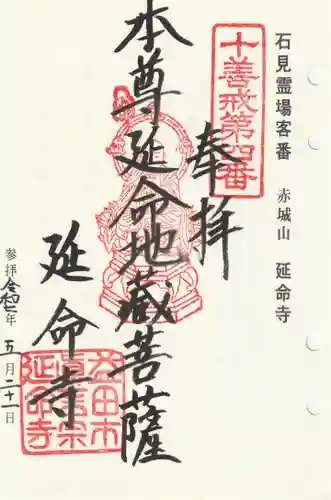 石見霊場客番　赤城山　延命寺
十善戒第四番
奉拝
本尊延命地蔵菩薩
延命寺
益田市
真言宗
延命寺
参拝令和七年五月二十一日